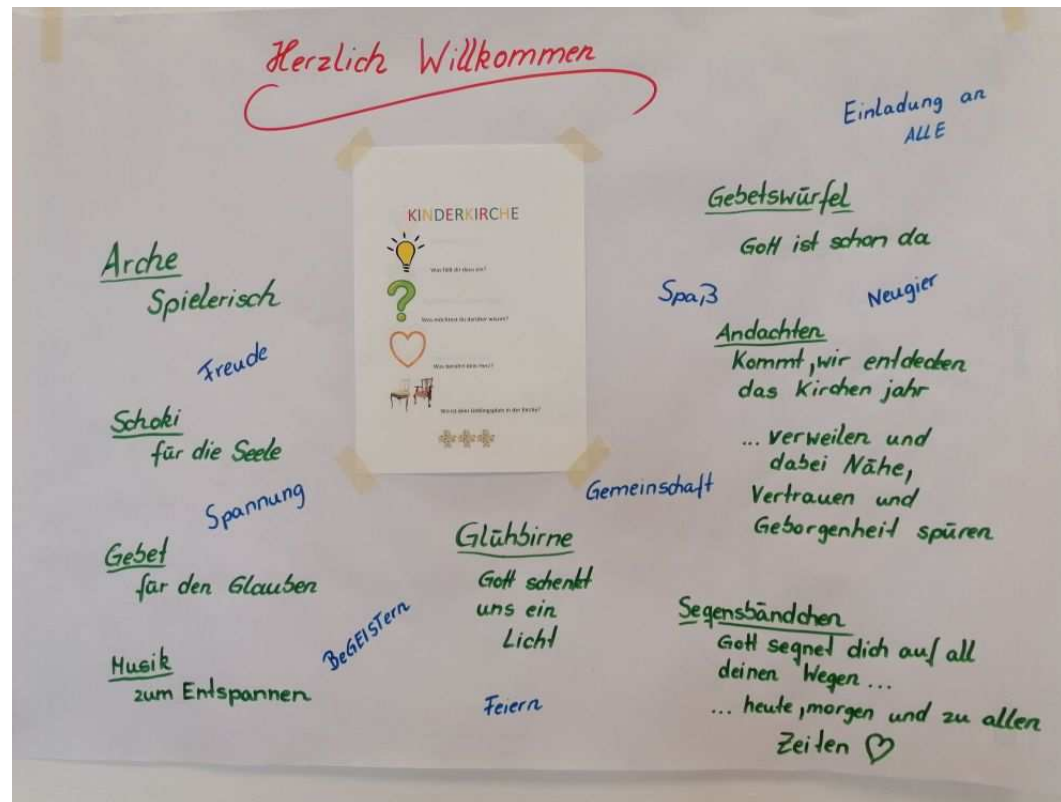 Herzlich Willkommen
Einladung an
ALLE
KINDERKIRCHE
Was fällt dir dazu ein?
Was möchtest du darüber wissen?
Was berührt dein Herz?
Wo ist dein Lieblingsplatz in der Kirche?
Arche
Spielerisch
Freude
Schoki
für die Seele
Spannung
Gebet
für den Glauben
Musik
zum Entspannen
BeGEISTern
Glühbirne
Gott schenkt
uns ein
Licht
Feiern
Gemeinschaft
Spaß
Neugier
Gebetswürfel
Gott ist schon da
Andachten
Kommt, wir entdecken
das Kirchen jahr
... verweilen und
dabei Nähe,
Vertrauen und
Geborgenheit spüren
Segensbändchen
Gott segnet dich auf all
deinen Wegen ...
... heute, morgen und zu allen
Zeiten